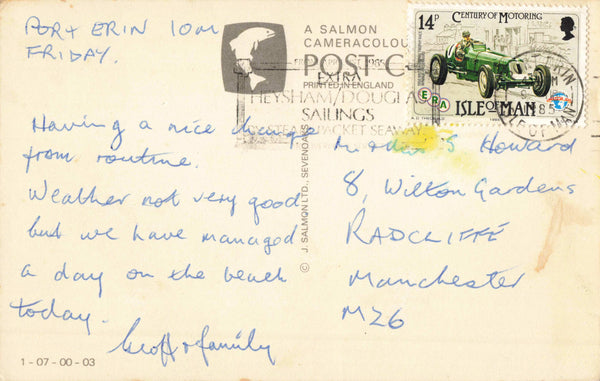 PORT ERIN IOM
FRIDAY.
Having a nice change
from routine.
Weather not very good
but we have managed
a day on the beach
today.
Geoff & family
1-07-00-03
© J. SALMON LTD., SEVENOAKS
A SALMON
CAMERACOLOU
POST C
PRINTED IN ENGLAND
EXTRA
HEYSHAM/DOUGLAS
SAILINGS
SEAWAY
14P
CENTURY OF MOTORING
ERA
ISLE OF MAN
85
OF MAN
S Howard
8, Wilton Gardens
RADCLIFFE
Manchester
M26